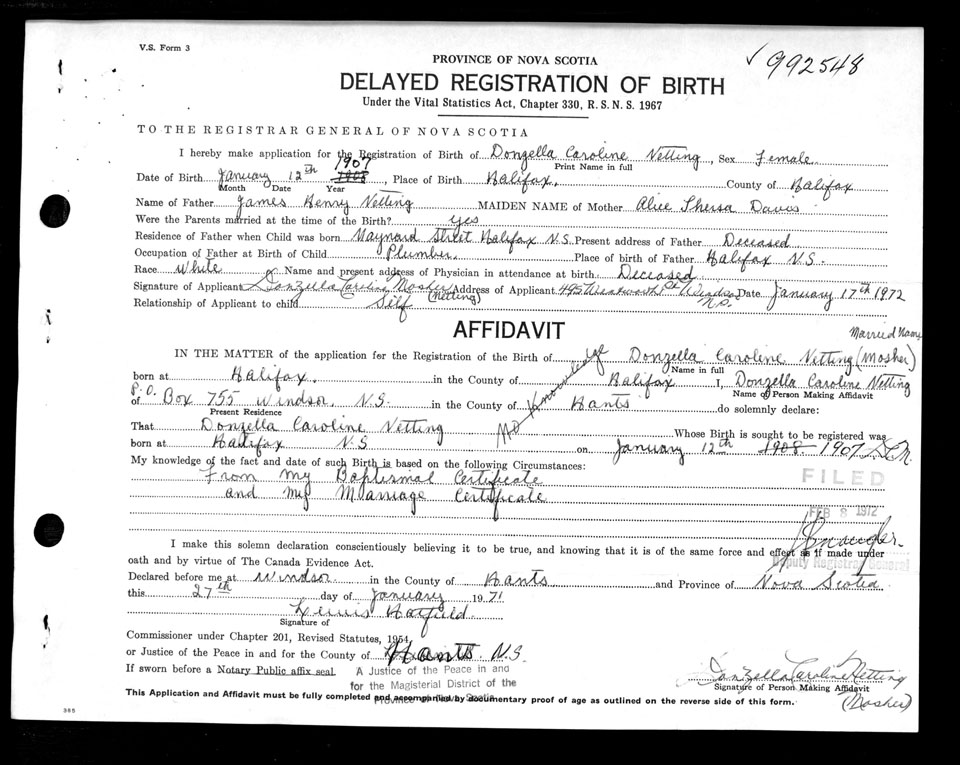 V.S. Form 3
PROVINCE OF NOVA SCOTIA
✓992548
DELAYED REGISTRATION OF BIRTH
Under the Vital Statistics Act, Chapter 330, R.S.N.S. 1967
TO THE REGISTRAR GENERAL OF NOVA SCOTIA
I hereby make application for the Registration of Birth of Donzella Caroline Netting, Sex Female
Print Name in full
1907
Date of Birth January 12th 1908, Place of Birth Halifax, County of Halifax
Month Date Year
Name of Father James Henry Netting MAIDEN NAME of Mother Alice Thersa Davis
Were the Parents married at the time of the Birth? Yes
Residence of Father when Child was born Maynard Street Halifax N.S. Present address of Father Deceased
Occupation of Father at Birth of Child Plumber Place of birth of Father Halifax N.S.
Race White Name and present address of Physician in attendance at birth Deceased
Signature of Applicant Donzella Caroline Mosher Address of Applicant 495 Wentworth Windsor Date January 17th 1972
(Netting) N.S.
Relationship of Applicant to child Self
AFFIDAVIT
Married Name
IN THE MATTER of the application for the Registration of the Birth of Donzella Caroline Netting (Mosher)
Name in full
born at Halifax. in the County of Halifax I, Donzella Caroline Netting
Name of Person Making Affidavit
P.O.
of Box 755 Windsor, N.S. in the County of Hants do solemnly declare:
Present Residence
That Donzella Caroline Netting Whose Birth is sought to be registered was
born at Halifax N.S on January 12th 1908 1907 D.C.N.
My knowledge of the fact and date of such Birth is based on the following Circumstances:
FILED
From my Baptismal Certificate
and my Marriage Certificate
FEB 8 1972
I make this solemn declaration conscientiously believing it to be true, and knowing that it is of the same force and effect as if made under
oath and by virtue of The Canada Evidence Act.
Deputy Registrar General
Declared before me at Windsor in the County of Hants and Province of Nova Scotia
this 27th day of January 1971
Lewis Hatfield
Signature of
Commissioner under Chapter 201, Revised Statutes, 1954,
or Justice of the Peace in and for the County of Hants N.S.
If sworn before a Notary Public affix seal.
A Justice of the Peace in and
for the Magisterial District of the
Province of Nova Scotia
Donzella Caroline Netting
Signature of Person Making Affidavit
(Mosher)
This Application and Affidavit must be fully completed and accompanied by documentary proof of age as outlined on the reverse side of this form.
385